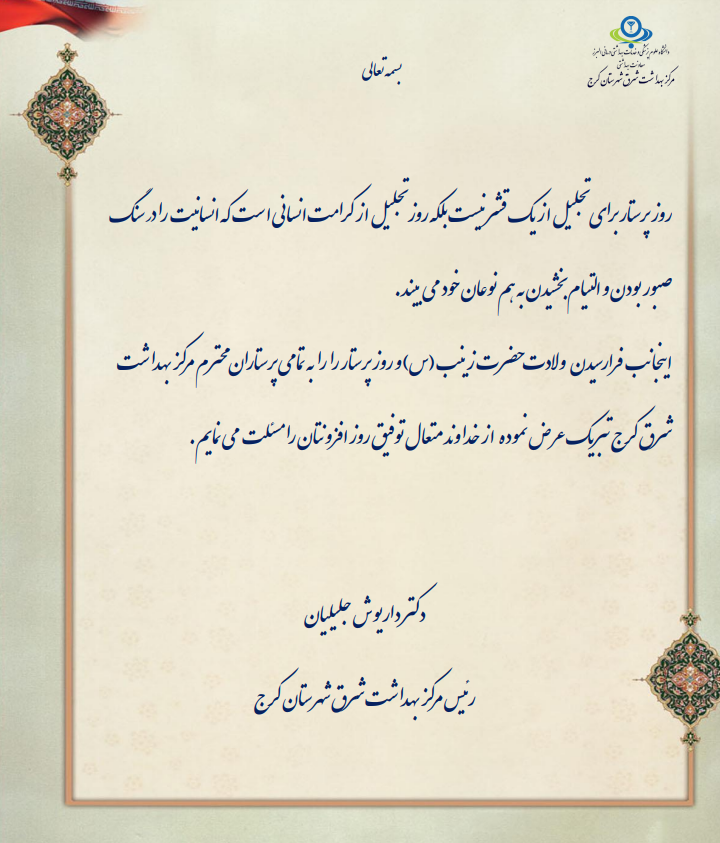 دانشگاه علوم پزشکی و خدمات بهداشتی درمانی البرز
معاونت بهداشتی
مرکز بهداشت شرق شهرستان کرج
بسمه تعالی
روز پرستار برای تجلیل از یک قشر نیست بلکه روز تجلیل از کرامت انسانی است که انسانیت را در سنگ
صبور بودن و التیام بخشیدن به هم نوعان خود می بیند.
اینجانب فرارسیدن ولادت حضرت زینب (س) و روز پرستار را را به تمامی پرستاران محترم مرکز بهداشت
شرق کرج تبریک عرض نموده از خداوند متعال توفیق روز افزونتان را مسئلت می نمایم.
دکتر داریوش جلیلیان
رئیس مرکز بهداشت شرق شهرستان کرج